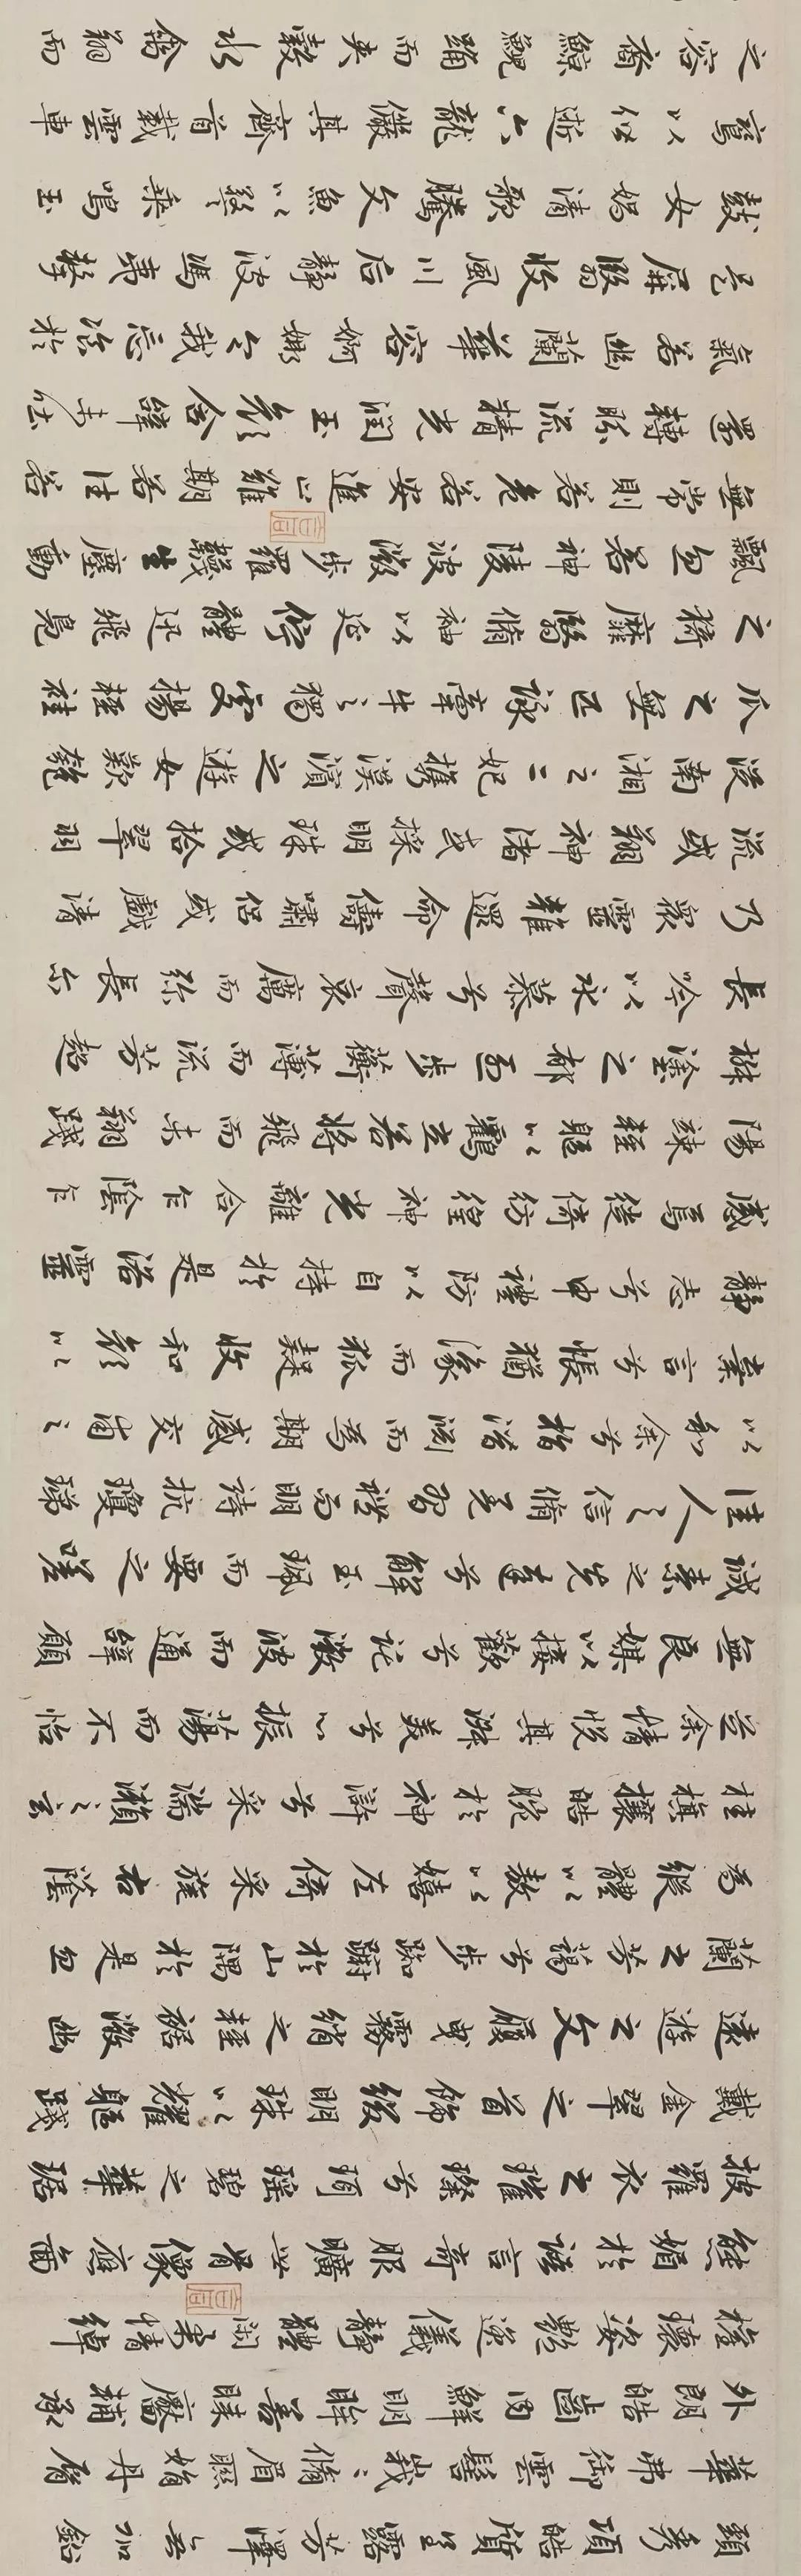 頸秀項皓質呈露芳澤無加鉛
華弗御雲髻峩々脩眉聯娟丹脣
外朗皓齒內鮮明眸善睞靨輔承
權瓌姿艷逸儀靜體閑柔情綽
態媚於語言奇服曠世骨像應圖
披羅衣之璀粲兮珥瑤碧之華琚
戴金翠之首飾綴明珠以耀軀踐
遠遊之文履曳霧綃之輕裾微幽
蘭之芳藹兮步踟躕於山隅於是忽
焉縱體以敖以嬉左倚采旄右蔭
桂旗攘皓腕於神滸兮采湍瀨之玄
芝余情悅其淑美兮心振蕩而不怡
無良媒以接歡兮託微波而通辭願
誠素之先達兮解玉珮而要之嗟
佳人之信脩羌習禮而明詩抗瓊珶
以和余兮指潛淵而為期感交甫之
棄言兮悵猶豫而狐疑收和顏以
靜志兮申禮防以自持於是洛靈
感焉徙倚彷徨神光離合乍陰乍
陽竦輕軀以鶴立若將飛而未翔踐
椒塗之郁烈步蘅薄而流芳超
長吟以永慕兮聲哀厲而彌長尓
乃眾靈雜遝命儔嘯侶或戲清
流或翔神渚或採明珠或拾翠羽
從南湘之二妃攜漢濱之遊女歎匏
瓜之無匹詠牽牛之獨處揚輕袿
之猗靡翳脩袖以延佇體迅飛鳧
飄忽若神陵波微步羅韈生塵動
無常則若危若安進止難期若往若
還轉眄流精光潤玉顏含辭未吐
氣若幽蘭華容婀娜令我忘飡於
是屏翳收風川后靜波馮夷擊
鼓女媧清歌騰文魚以警乘鳴玉
鸞以偕逝六龍儼其齊首載雲車
之容裔鯨鯢踴而夾轂水禽翔而